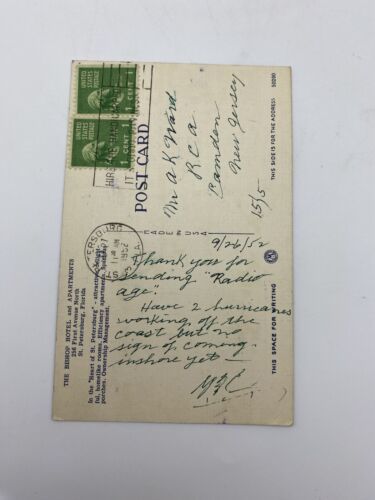 UNITED STATES POSTAGE
1 CENT 1
UNITED STATES POSTAGE
1 CENT 1
POST CARD
Mr A K Ward
R C A
Camden
New Jersey
15/5
THIS SIDE IS FOR THE ADDRESS
50280
MADE IN U.S.A.
1952
THE BISHOP HOTEL and APARTMENTS
256 First Avenue North
St. Petersburg, Florida
In the "Heart of St. Petersburg"
homelike rooms. Efficiency apartments.
porches. Ownership Management.
9/26/52
Thank you for
sending "Radio
age".
Have 2 hurricanes
working off the
coast but no
sign of coming
inshore yet —
THIS SPACE FOR WRITING